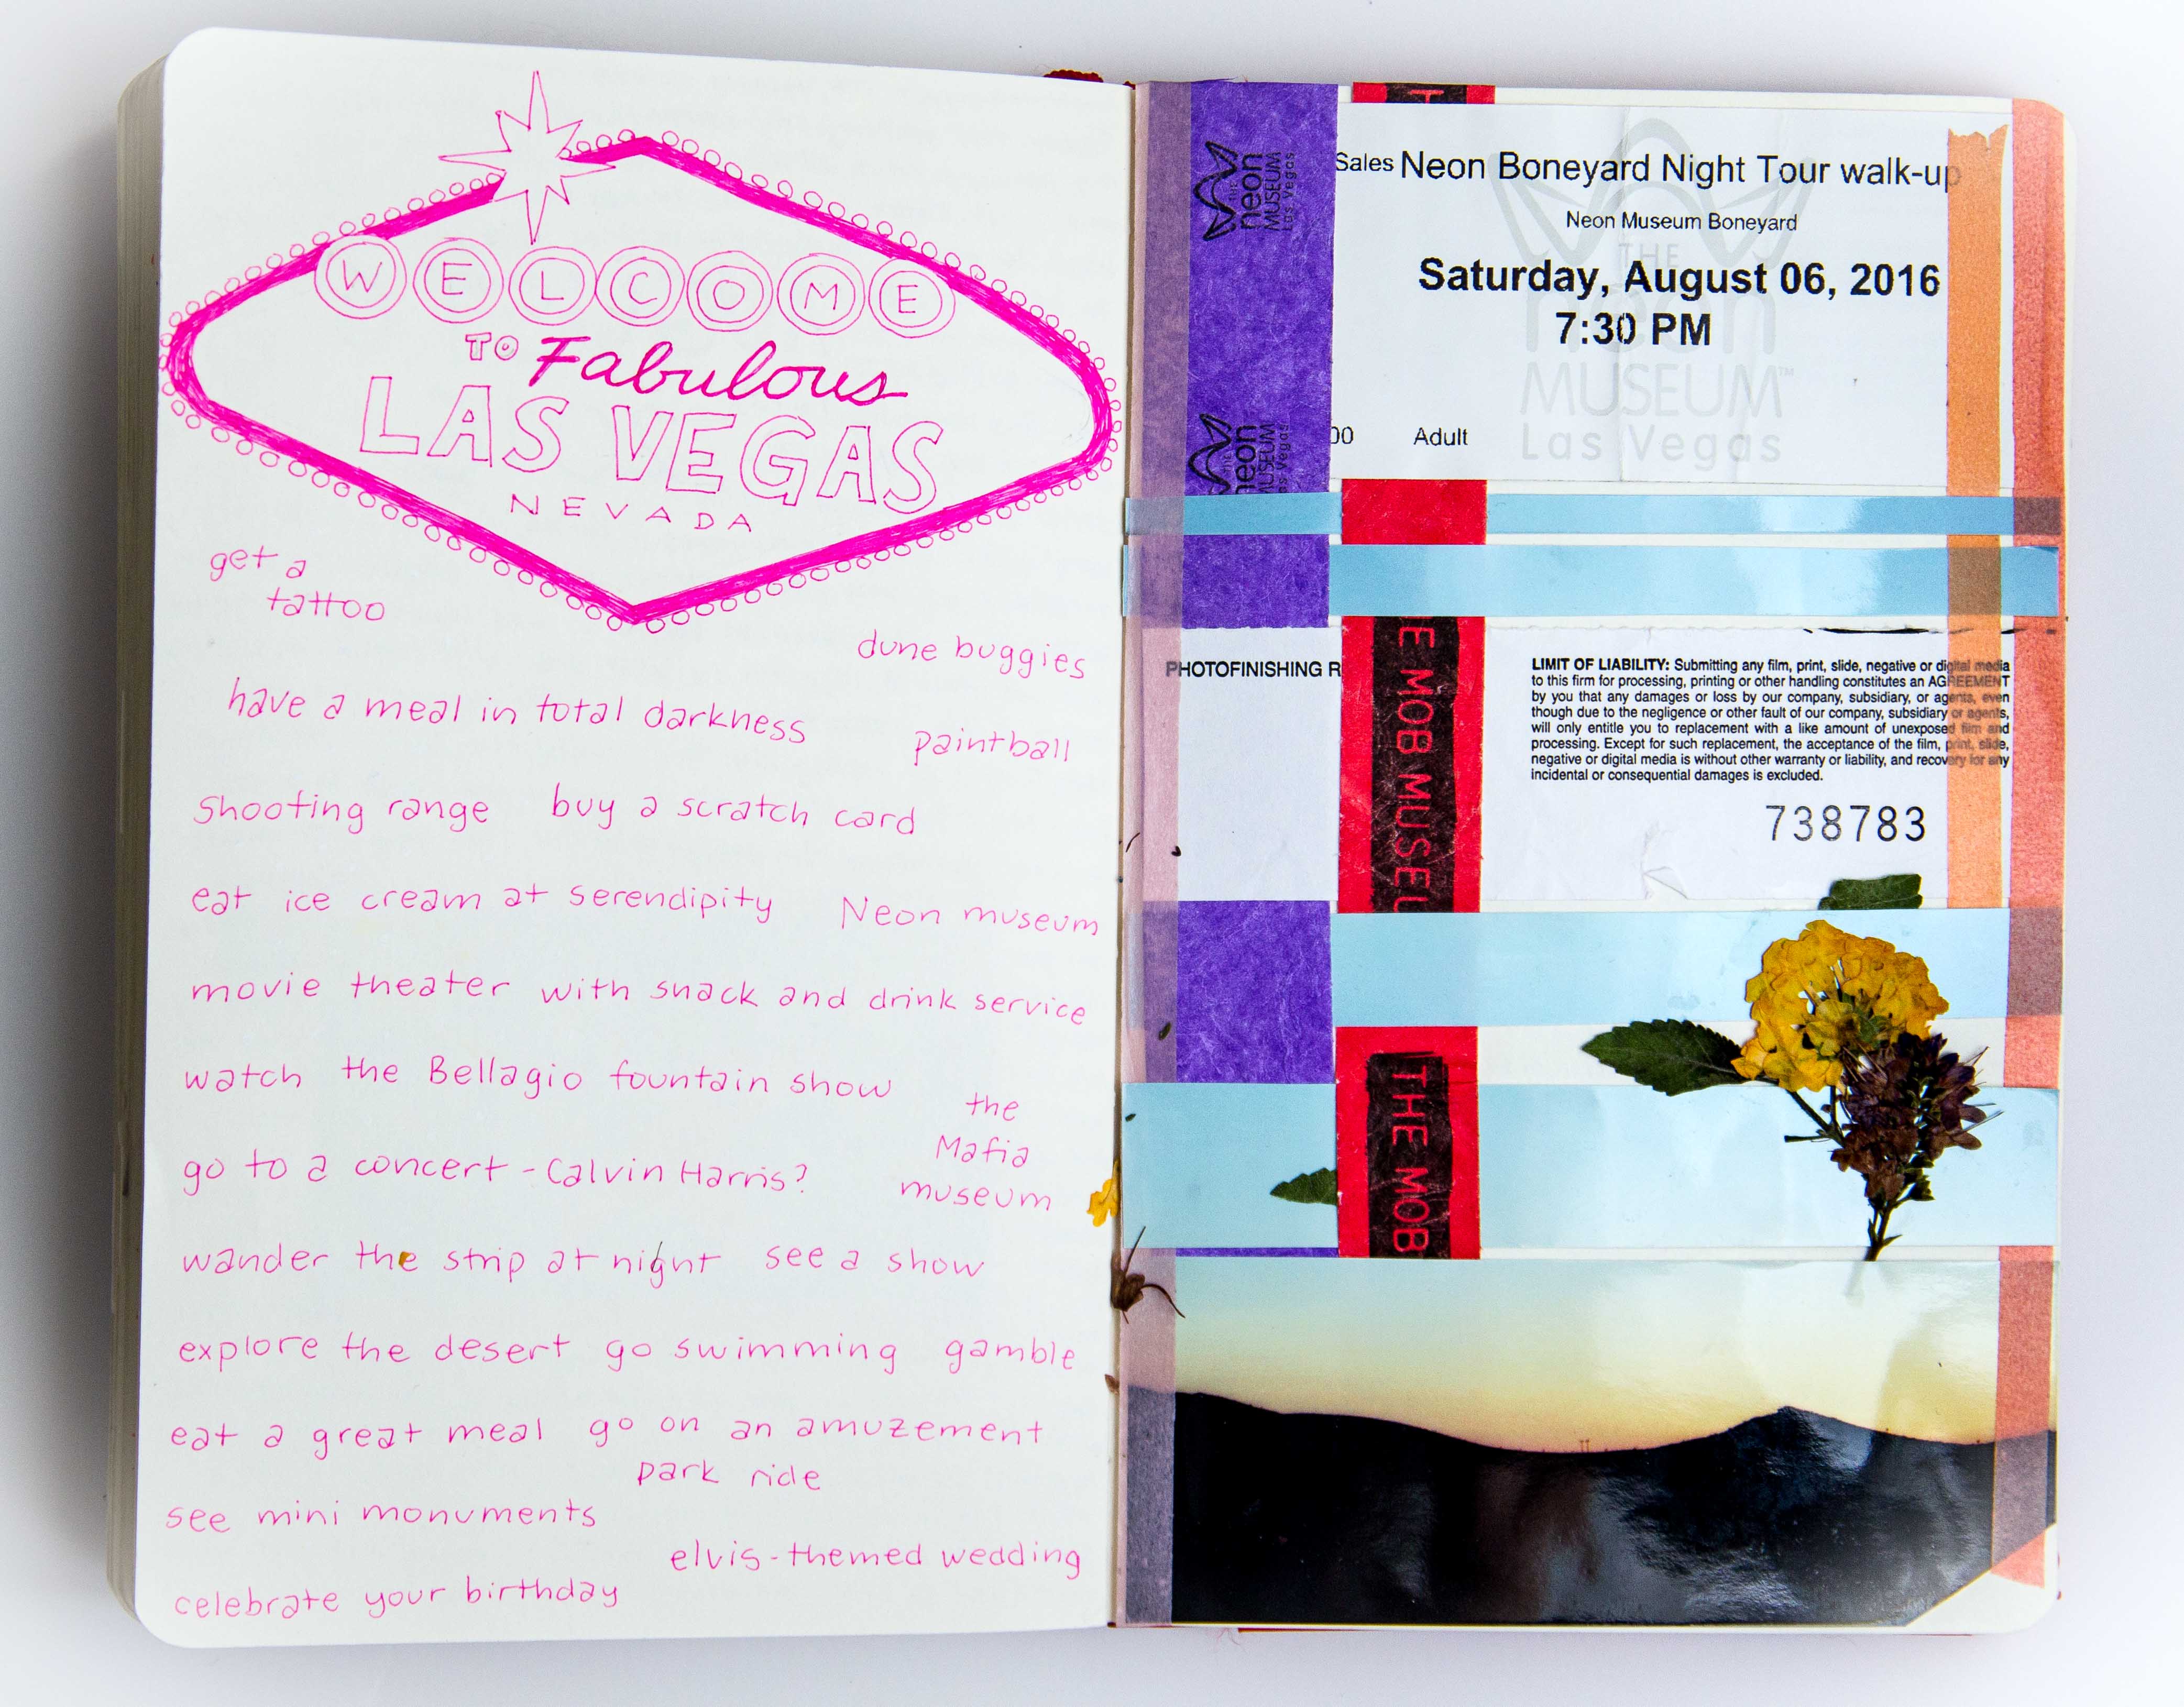 WELCOME
TO Fabulous
LAS VEGAS
NEVADA
get a
tattoo
dune buggies
have a meal in total darkness
paintball
shooting range buy a scratch card
eat ice cream at serendipity Neon museum
movie theater with snack and drink service
watch the Bellagio fountain show
the
Mafia
museum
go to a concert - Calvin Harris?
wander the strip at night see a show
explore the desert go swimming gamble
eat a great meal go on an amuzement
park ride
see mini monuments
elvis-themed wedding
celebrate your birthday
THE
neon
MUSEUM
Las Vegas
THE
neon
MUSEUM
Las Vegas
Sales Neon Boneyard Night Tour walk-up
Neon Museum Boneyard
Saturday, August 06, 2016
7:30 PM
00 Adult
THE
neon
MUSEUM™
Las Vegas
PHOTOFINISHING R
E MOB MUSEU
THE MOB
LIMIT OF LIABILITY: Submitting any film, print, slide, negative or digital media
to this firm for processing, printing or other handling constitutes an AGREEMENT
by you that any damages or loss by our company, subsidiary, or agents, even
though due to the negligence or other fault of our company, subsidiary or agents,
will only entitle you to replacement with a like amount of unexposed film and
processing. Except for such replacement, the acceptance of the film, print, slide,
negative or digital media is without other warranty or liability, and recovery for any
incidental or consequential damages is excluded.
738783